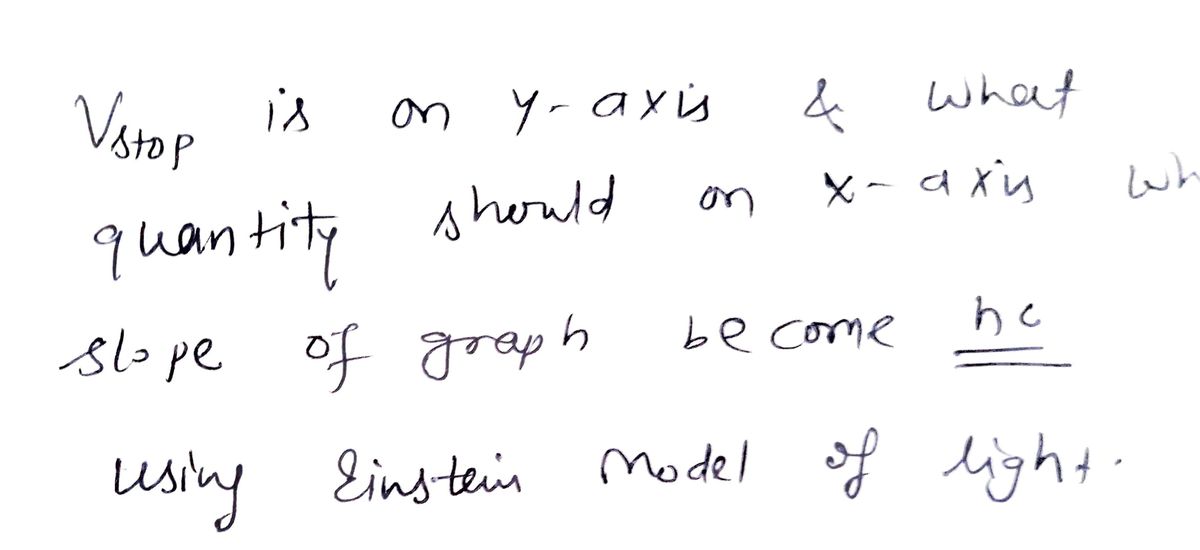 Vstop is on y-axis & what
quantity should on x-axis wh
slope of graph become hc
using Einstein model of light.